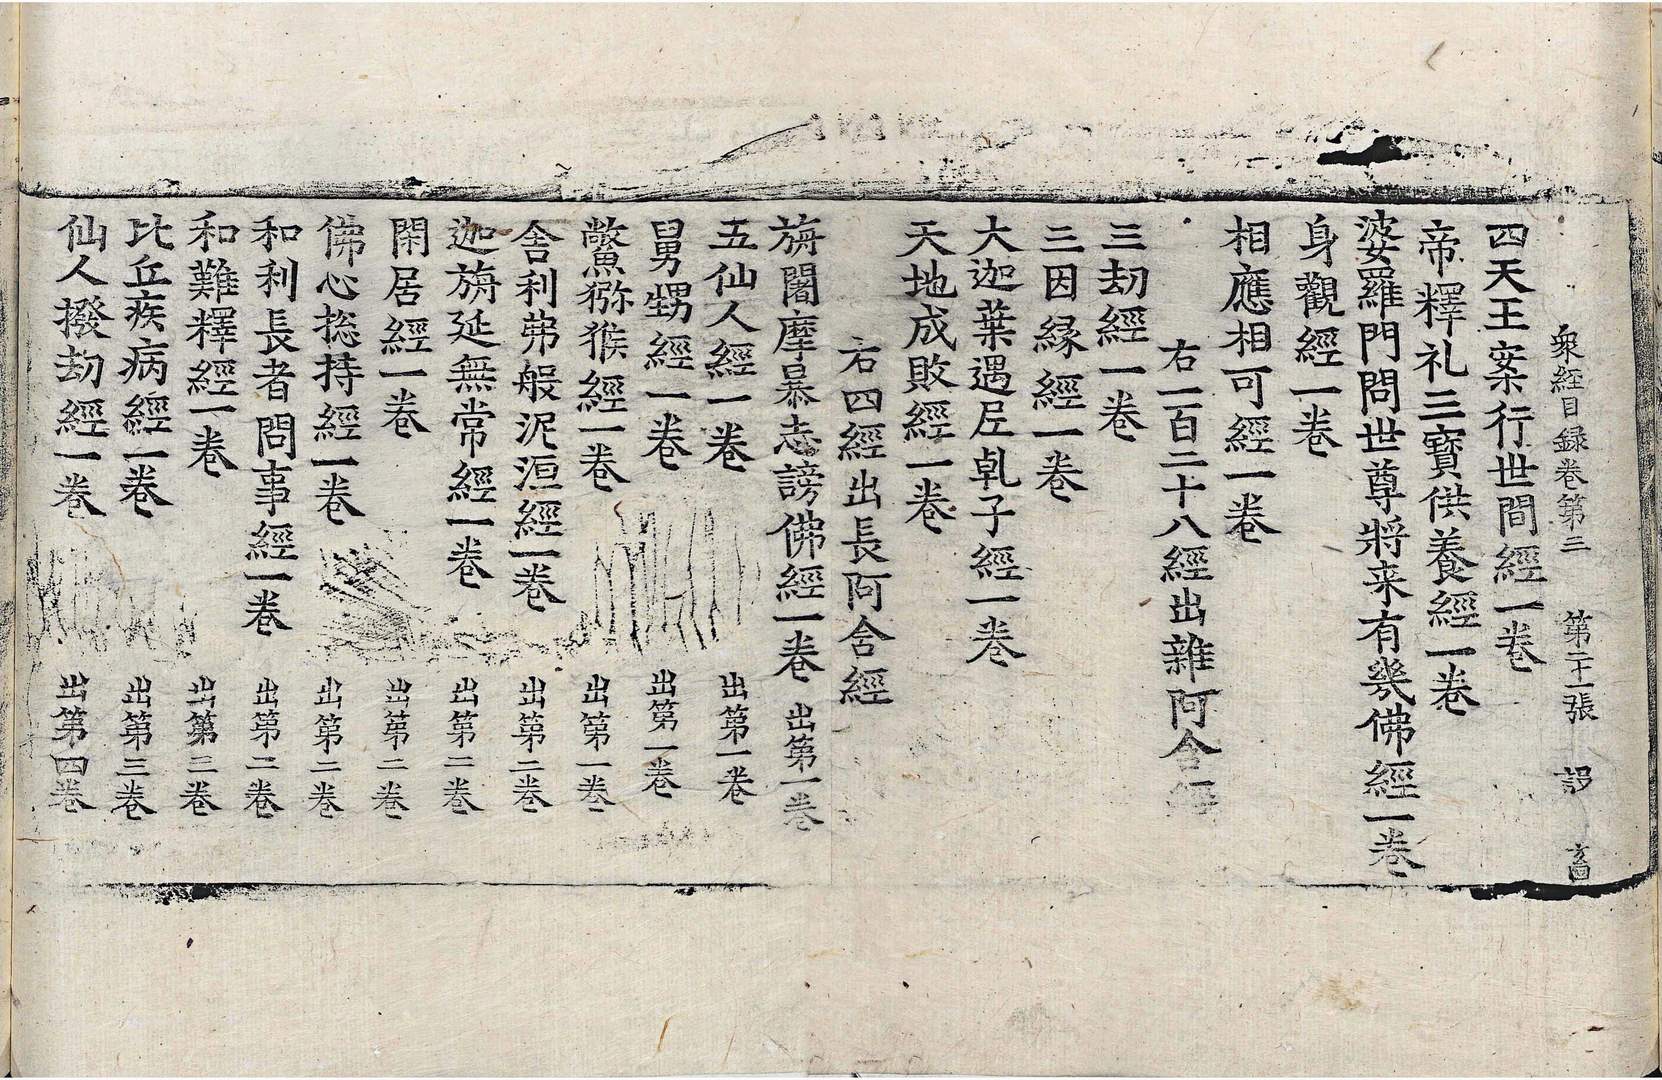 衆經目録卷第三　第二十一張　𧧼　畜
四天王案行世間經一卷
帝釋礼三寶供養經一卷
婆羅門問世尊將来有幾佛經一卷
身觀經一卷
相應相可經一卷
右一百二十八經出雜阿含經
三劫經一卷
三因緣經一卷
大迦葉遇尼乹子經一卷
天地成敗經一卷
右四經出長阿含經
旃闍摩暴志謗佛經一卷　出第一卷
五仙人經一卷　出第一卷
舅甥經一卷　出第一卷
鱉獼猴經一卷　出第一卷
舍利弗般泥洹經一卷　出第二卷
迦旃延無常經一卷　出第二卷
閑居經一卷　出第二卷
佛心捴持經一卷　出第二卷
和利長者問事經一卷　出第二卷
和難釋經一卷　出第三卷
比丘疾病經一卷　出第三卷
仙人撥劫經一卷　出第四卷